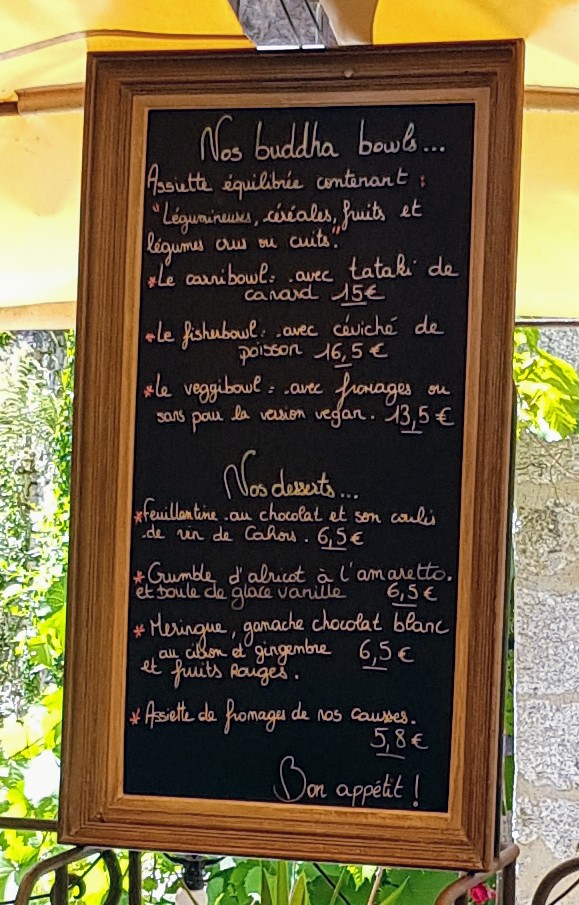 Nos buddha bowls...
Assiette équilibrée contenant :
"Légumineuses, céréales, fruits et
légumes crus ou cuits."
*Le carnibowl : avec tataki de
canard 15€
*Le fisherbowl : avec céviché de
poisson 16,5 €
*Le veggibowl : avec fromages ou
sans pour la version vegan. 13,5 €
Nos desserts...
*Feuillantine au chocolat et son coulis
de vin de Cahors. 6,5€
*Crumble d'abricot à l'amaretto.
et boule de glace vanille 6,5 €
*Meringue, ganache chocolat blanc
au citron et gingembre 6,5 €
et fruits Rouges.
*Assiette de fromages de nos causses.
5,8 €
Bon appétit !